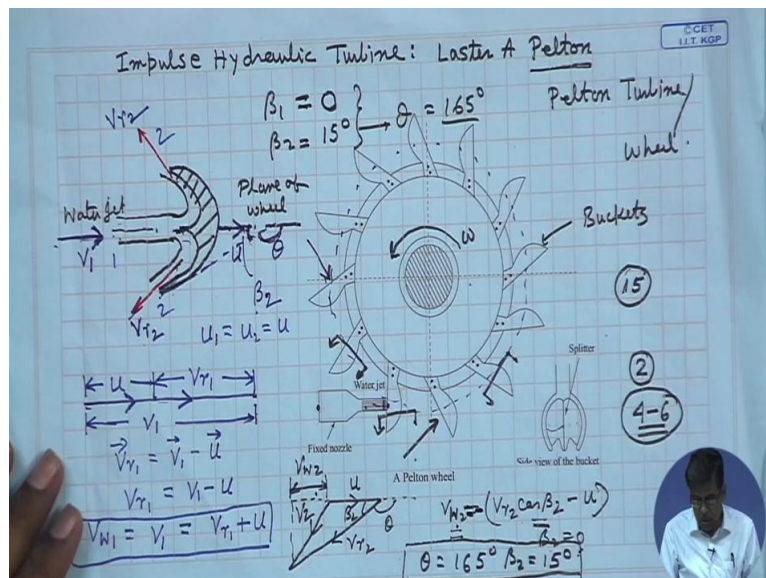 © CET
I.I.T. KGP
Impulse Hydraulic Turbine: Laster A Pelton
β1 = 0
β2 = 15°
→ θ = 165°
Pelton Turbine/
Wheel.
Vr2
2
Water jet
V1
1
Plane of
wheel
u
θ
β2
Vr2
2
u1 = u2 = u
ω
Buckets
15
2
4-6
Splitter
Water jet
Fixed nozzle
A Pelton wheel
Side view of the bucket
u
Vr1
V1
Vr1 = V1 - u
Vr1 = V1 - u
Vw1 = V1 = Vr1 + u
Vw2
u
V2
β2
θ
Vr2
Vw2 = (Vr2 cos β2 - u)
β2 = 0
θ = 165° β2 = 15°